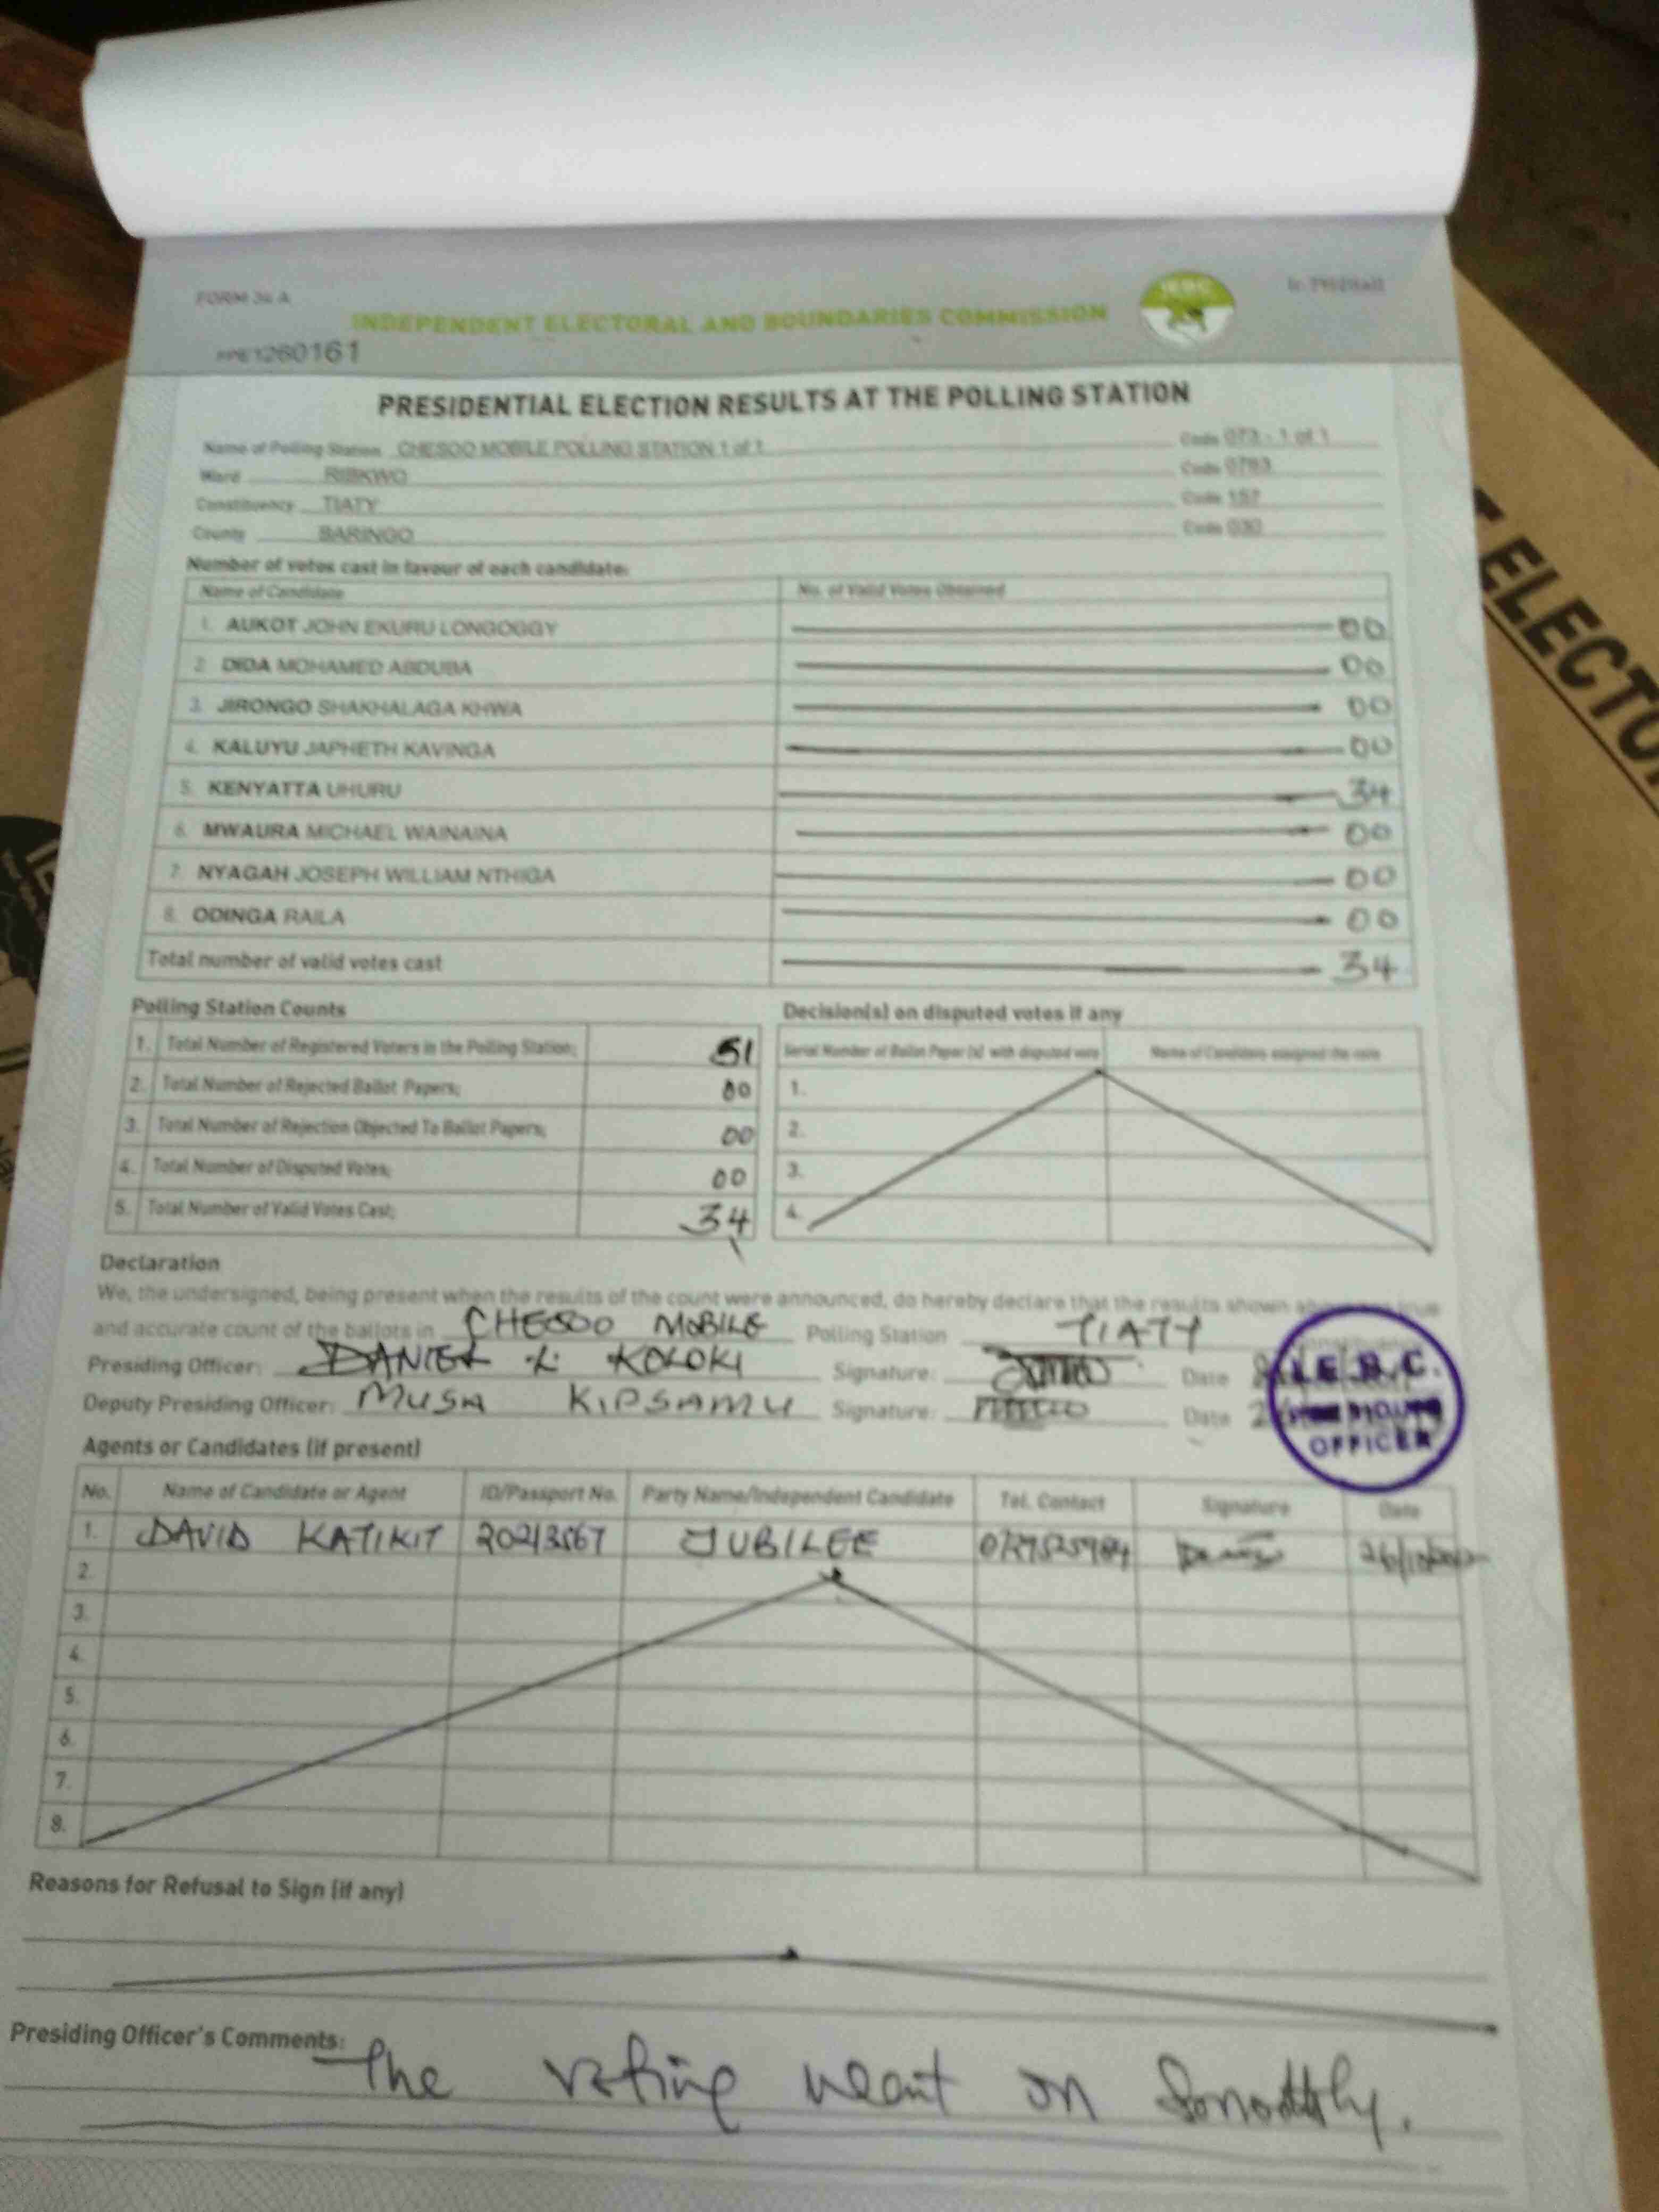 FORM 34 A
INDEPENDENT ELECTORAL AND BOUNDARIES COMMISSION
1260161
PRESIDENTIAL ELECTION RESULTS AT THE POLLING STATION
Name of Polling Station CHESOO MOBILE POLLING STATION 1 of 1 Code 073 - 1 of 1
Ward RIBKWO Code 0783
Constituency TIATY Code 157
County BARINGO Code 030
Number of votes cast in favour of each candidate:
Name of Candidate No. of Valid Votes Obtained
1. AUKOT JOHN EKURU LONGOGGY 00
2. DIDA MOHAMED ABDUBA 00
3. JIRONGO SHAKHALAGA KHWA 00
4. KALUYU JAPHETH KAVINGA 00
5. KENYATTA UHURU 34
6. MWAURA MICHAEL WAINAINA 00
7. NYAGAH JOSEPH WILLIAM NTHIGA 00
8. ODINGA RAILA 00
Total number of valid votes cast 34
Polling Station Counts
1. Total Number of Registered Voters in the Polling Station; 51
2. Total Number of Rejected Ballot Papers; 00
3. Total Number of Rejection Objected To Ballot Papers; 00
4. Total Number of Disputed Votes; 00
5. Total Number of Valid Votes Cast; 34
Decision(s) on disputed votes if any
Serial Number of Ballot Paper (s) with disputed vote Name of Candidate assigned the vote
1.
2.
3.
4.
Declaration
We, the undersigned, being present when the results of the count were announced, do hereby declare that the results shown
and accurate count of the ballots in CHESOO MOBILE Polling Station TIATY
Presiding Officer: DANIEL K KOLOKI Signature: Date
Deputy Presiding Officer: MUSA KIPSAMU Signature: Date
I.E.B.C.
OFFICER
Agents or Candidates (if present)
No. Name of Candidate or Agent ID/Passport No. Party Name/Independent Candidate Tel. Contact Signature Date
1. DAVID KATIKIT 20213567 JUBILEE
2.
3.
4.
5.
6.
7.
8.
Reasons for Refusal to Sign (if any)
Presiding Officer's Comments: The voting went on smoothly.
ELECTO